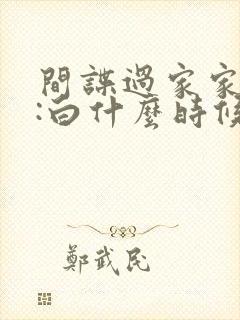 間諜過家家
:白什麼時候
鄭武民